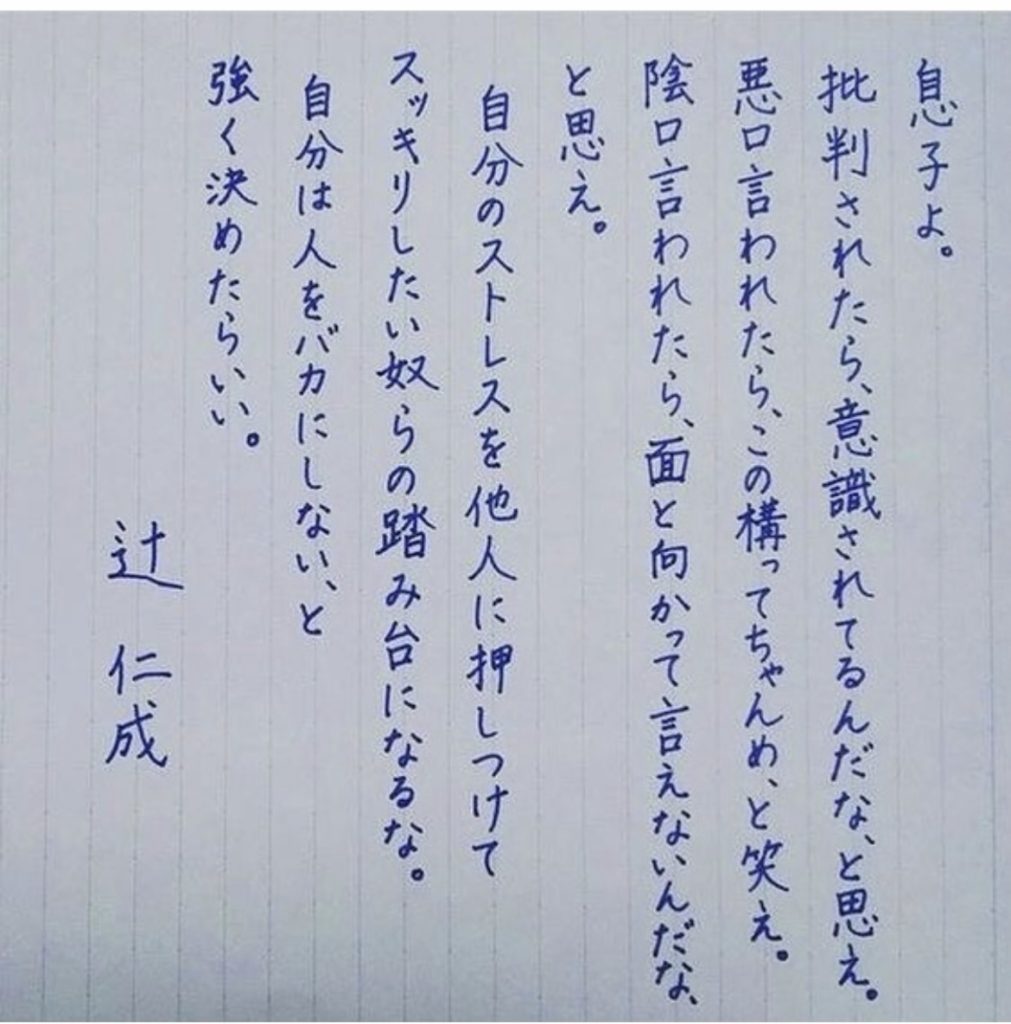 息子よ。
批判されたら、意識されてるんだな、と思え。
悪口言われたら、この構ってちゃんめ、と笑え。
陰口言われたら、面と向かって言えないんだな、
と思え。
自分のストレスを他人に押しつけて
スッキリしたい奴らの踏み台になるな。
自分は人をバカにしない、と
強く決めたらいい。
辻 仁成